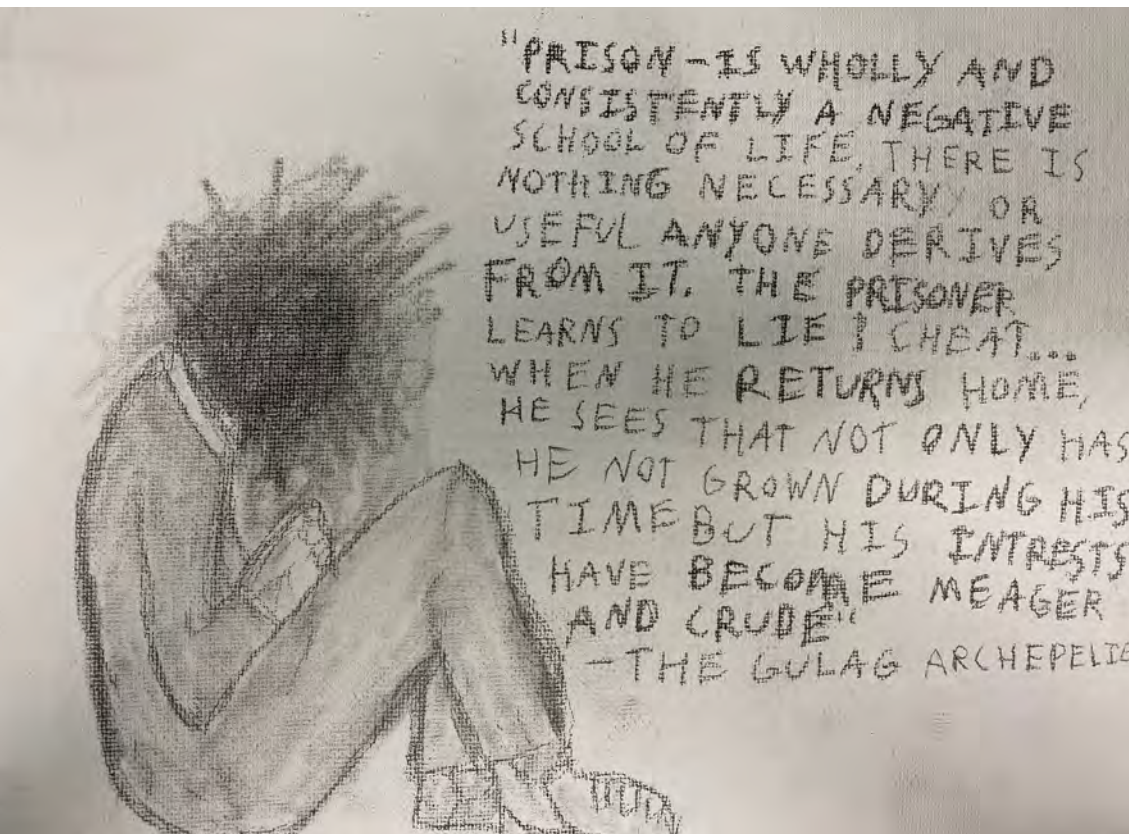 "PRISON - IS WHOLLY AND
CONSISTENTLY A NEGATIVE
SCHOOL OF LIFE, THERE IS
NOTHING NECESSARY, OR
USEFUL ANYONE DERIVES
FROM IT. THE PRISONER
LEARNS TO LIE & CHEAT...
WHEN HE RETURNS HOME,
HE SEES THAT NOT ONLY HAS
HE NOT GROWN DURING HIS
TIME BUT HIS INTRESTS
HAVE BECOME MEAGER
AND CRUDE"
- THE GULAG ARCHEPELIE